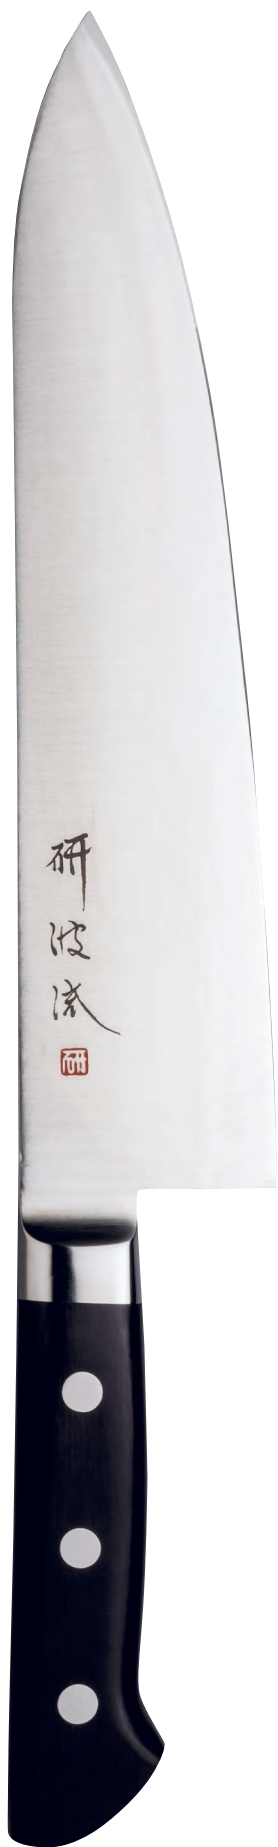 研波流
研